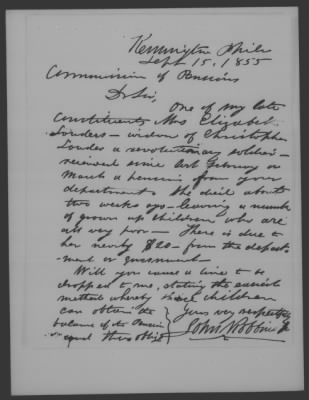 Kennsington Phila
Sept 15, 1855
Commissioner of Pensions
Dr Sir,
One of my late
constituents Mrs Elizabeth
Louders - widow of Christopher
Louder a revolutionary soldier -
received since last February or
March a pension from your
department. She died about
two weeks ago - leaving a number
of grown up children who are
all very poor - There is due to
her nearly $20 - from the depart-
ment or government -
Will you cause a line to be
dropped to me, stating the easiest
method whereby these children
can obtain the
balance of the Pension
& you will thus oblige
Yours very respectfully
John Robbins Jr